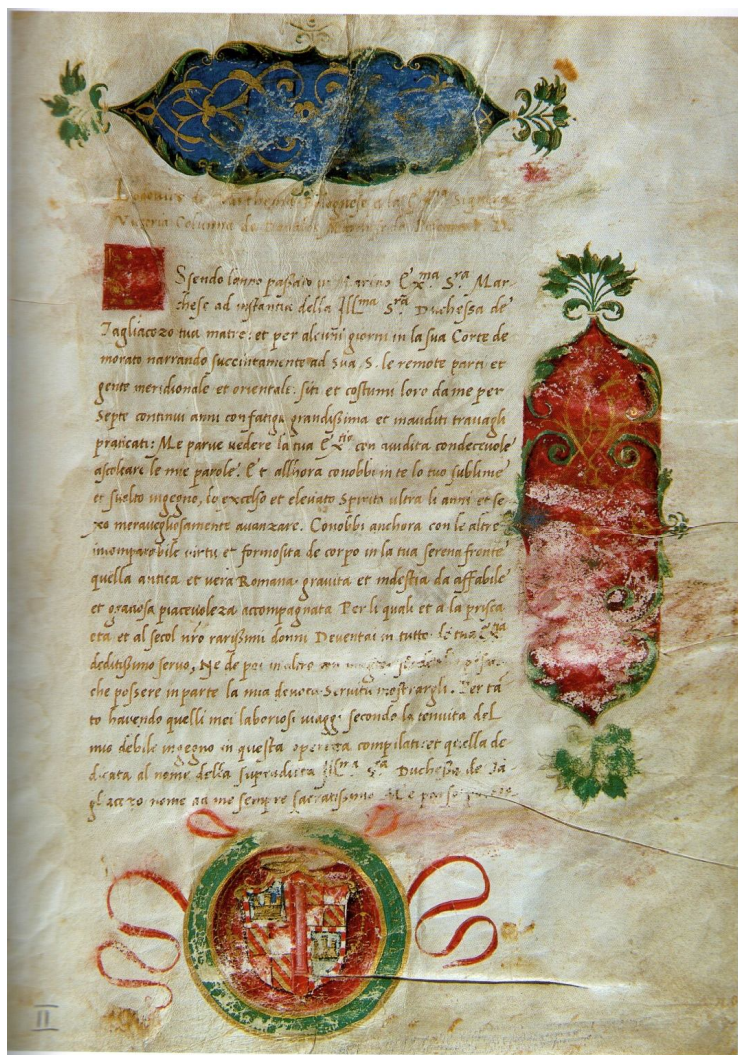 Lodovico de Barthema Bolognese a la Ex^ma Signora
Victoria Columna de
Ssendo lanno passato in Marino Ex^ma S^ra Mar
chese ad instantia della Ill^ma S^ra Duchessa de
Tagliacozo tua matre: et per alcuni giorni in la sua Corte de
morato narrando succintamente ad Sua .S. le remote parti et
gente meridionale et orientale: siti et costumi loro da me per
Septe continui anni con fatiga grandissima et inauditi travagli
praticati: Me parue uedere la tua Ex^tia con auidita condeceuole
ascoltare le mie parole. Et allhora conobbi in te lo tuo sublime
et suelto ingegno, lo excelso et eleuato Spirito ultra li anni et se
xo merauegliosamente auanzare. Conobbi anchora con le altre
incomparabile uirtu et formosita de corpo in la tua serena fronte
quella antica et uera Romana grauita et modestia da affabile
et gratiosa piaceuoleza accompagnata Per li quali et a la prisca
eta et al secol nro rarissimi donni Deuentai in tutto de tua Ex^tia
deditissimo seruo, Ne de poi in altro
che possere in parte la mia deuota Seruitu mostrargli. Per tã
to havendo quelli mei laboriosi uiaggi secondo la tenuita del
mio debile ingegno in questa operetta compilati: et quella de
dicata al nome della supradicta Ill^ma S^ra Duchessa de Ta
gliacozo nome ad me sempre sacratissimo Me parso
II